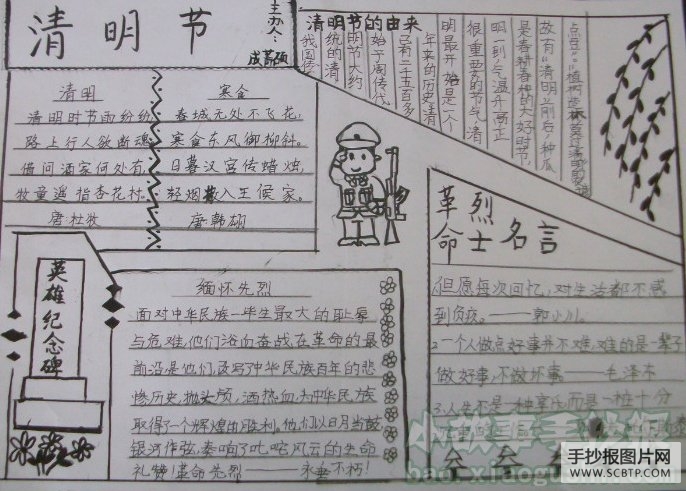 清明节
主办人:
清明节的由来
我国传
统的清
明节大约
始于周代
已有二千五百多
年来的历史清
明最开始是一个
很重要的节气清
明一到气温升高正
是春耕春种的大好时节
故有“清明前后种瓜
点豆”“植树造林莫过清明
清明
清明时节雨纷纷
路上行人欲断魂
借问酒家何处有
牧童遥指杏花村。
唐杜牧
寒食
春城无处不飞花,
寒食东风御柳斜。
日暮汉宫传蜡烛,
轻烟散入王侯家。
唐韩翃
英雄纪念碑
缅怀先烈
面对中华民族一毕生最大的耻辱
与危难,他们浴血奋战,在革命的最
前沿是他们谱写了中华民族百年的悲
惨历史,抛头颅,洒热血,为中华民族
取得了一个辉煌的胜利,他们以日月当鼓
银河作弦,奏响了叱咤风云的生命
礼赞!革命先烈——永垂不朽!
革命烈士名言
1.但愿每次回忆,对生活都不感
到负疚。——郭小川。
2.一个人做点好事并不难,难的是一辈子
做好事,不做坏事。——毛泽东
3.人生不是一种享乐而是一桩十分
手抄报图片网
WWW.SCBTP.COM